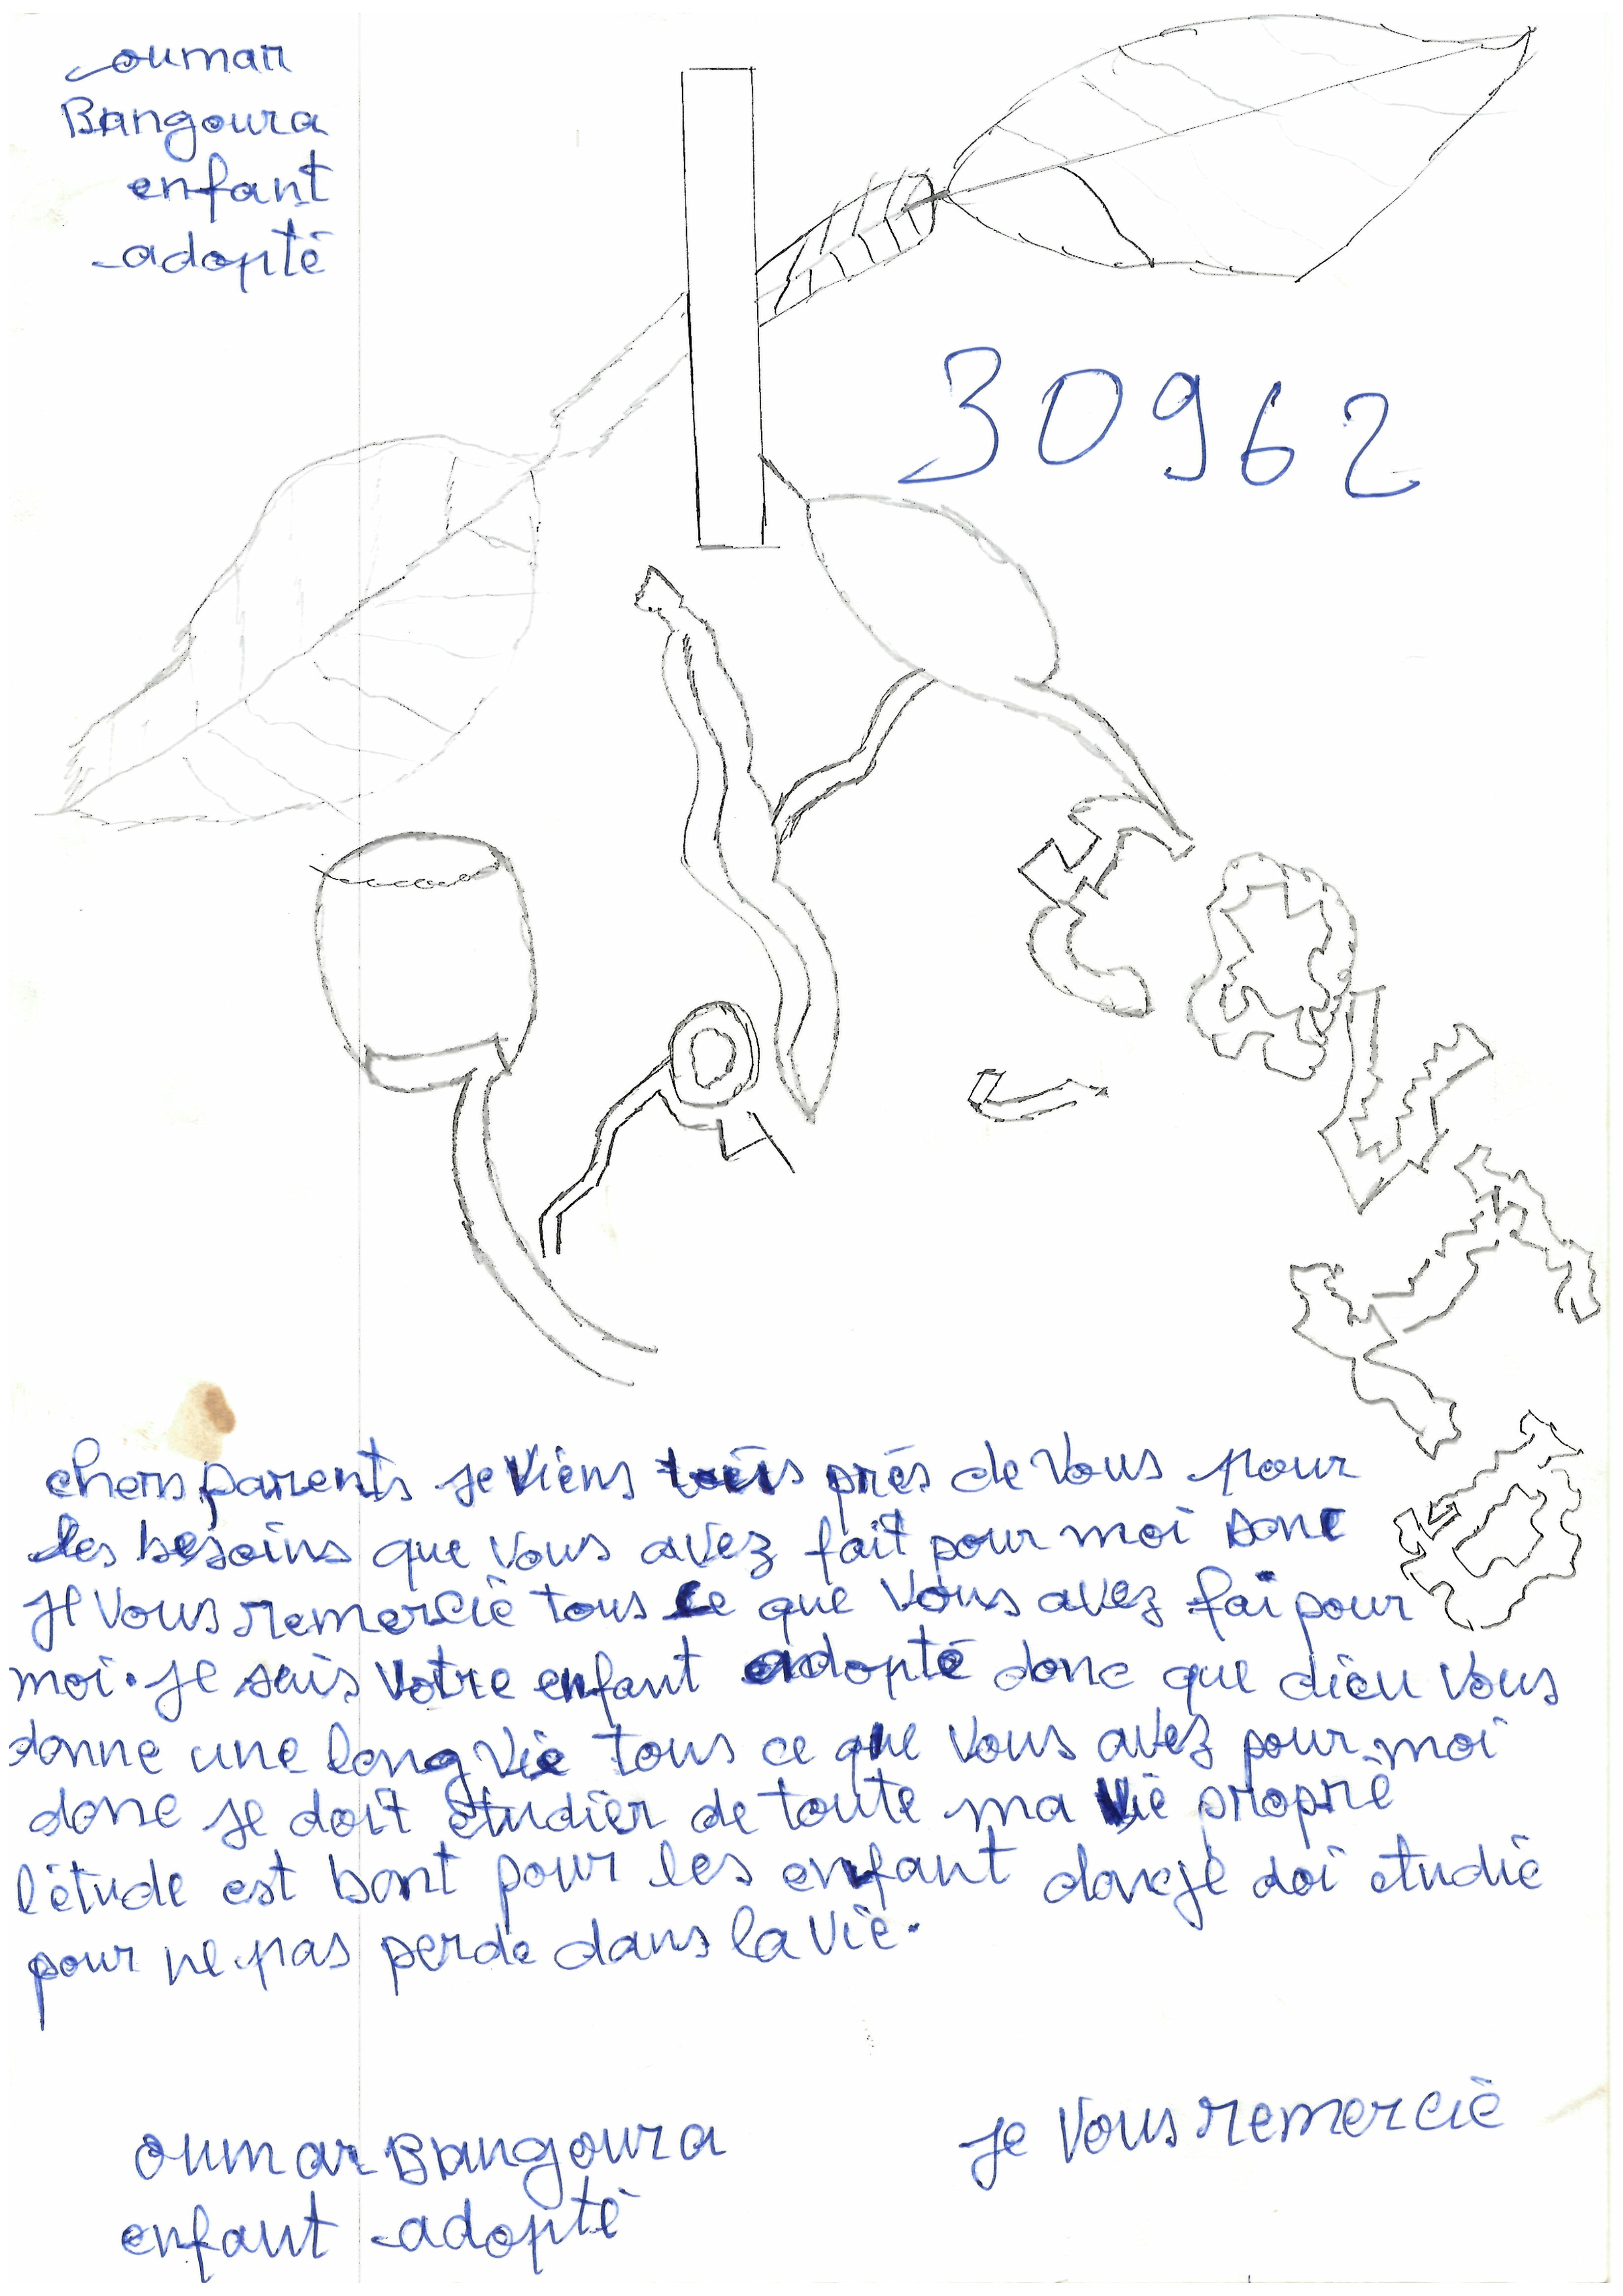 oumar
Bangoura
enfant
adopté
30962
chers parents je viens près de vous pour
les besoins que vous avez fait pour moi Donc
je vous remercie tous ce que vous avez fai pour
moi. je suis votre enfant adopté donc que dieu vous
donne une long vie tous ce que vous avez pour moi
donc je doit étudier de toute ma vie propre
l'étude est bont pour les enfant donc je doi etudié
pour ne pas perde dans la vie.
je vous remercie
oumar Bangoura
enfant adopté